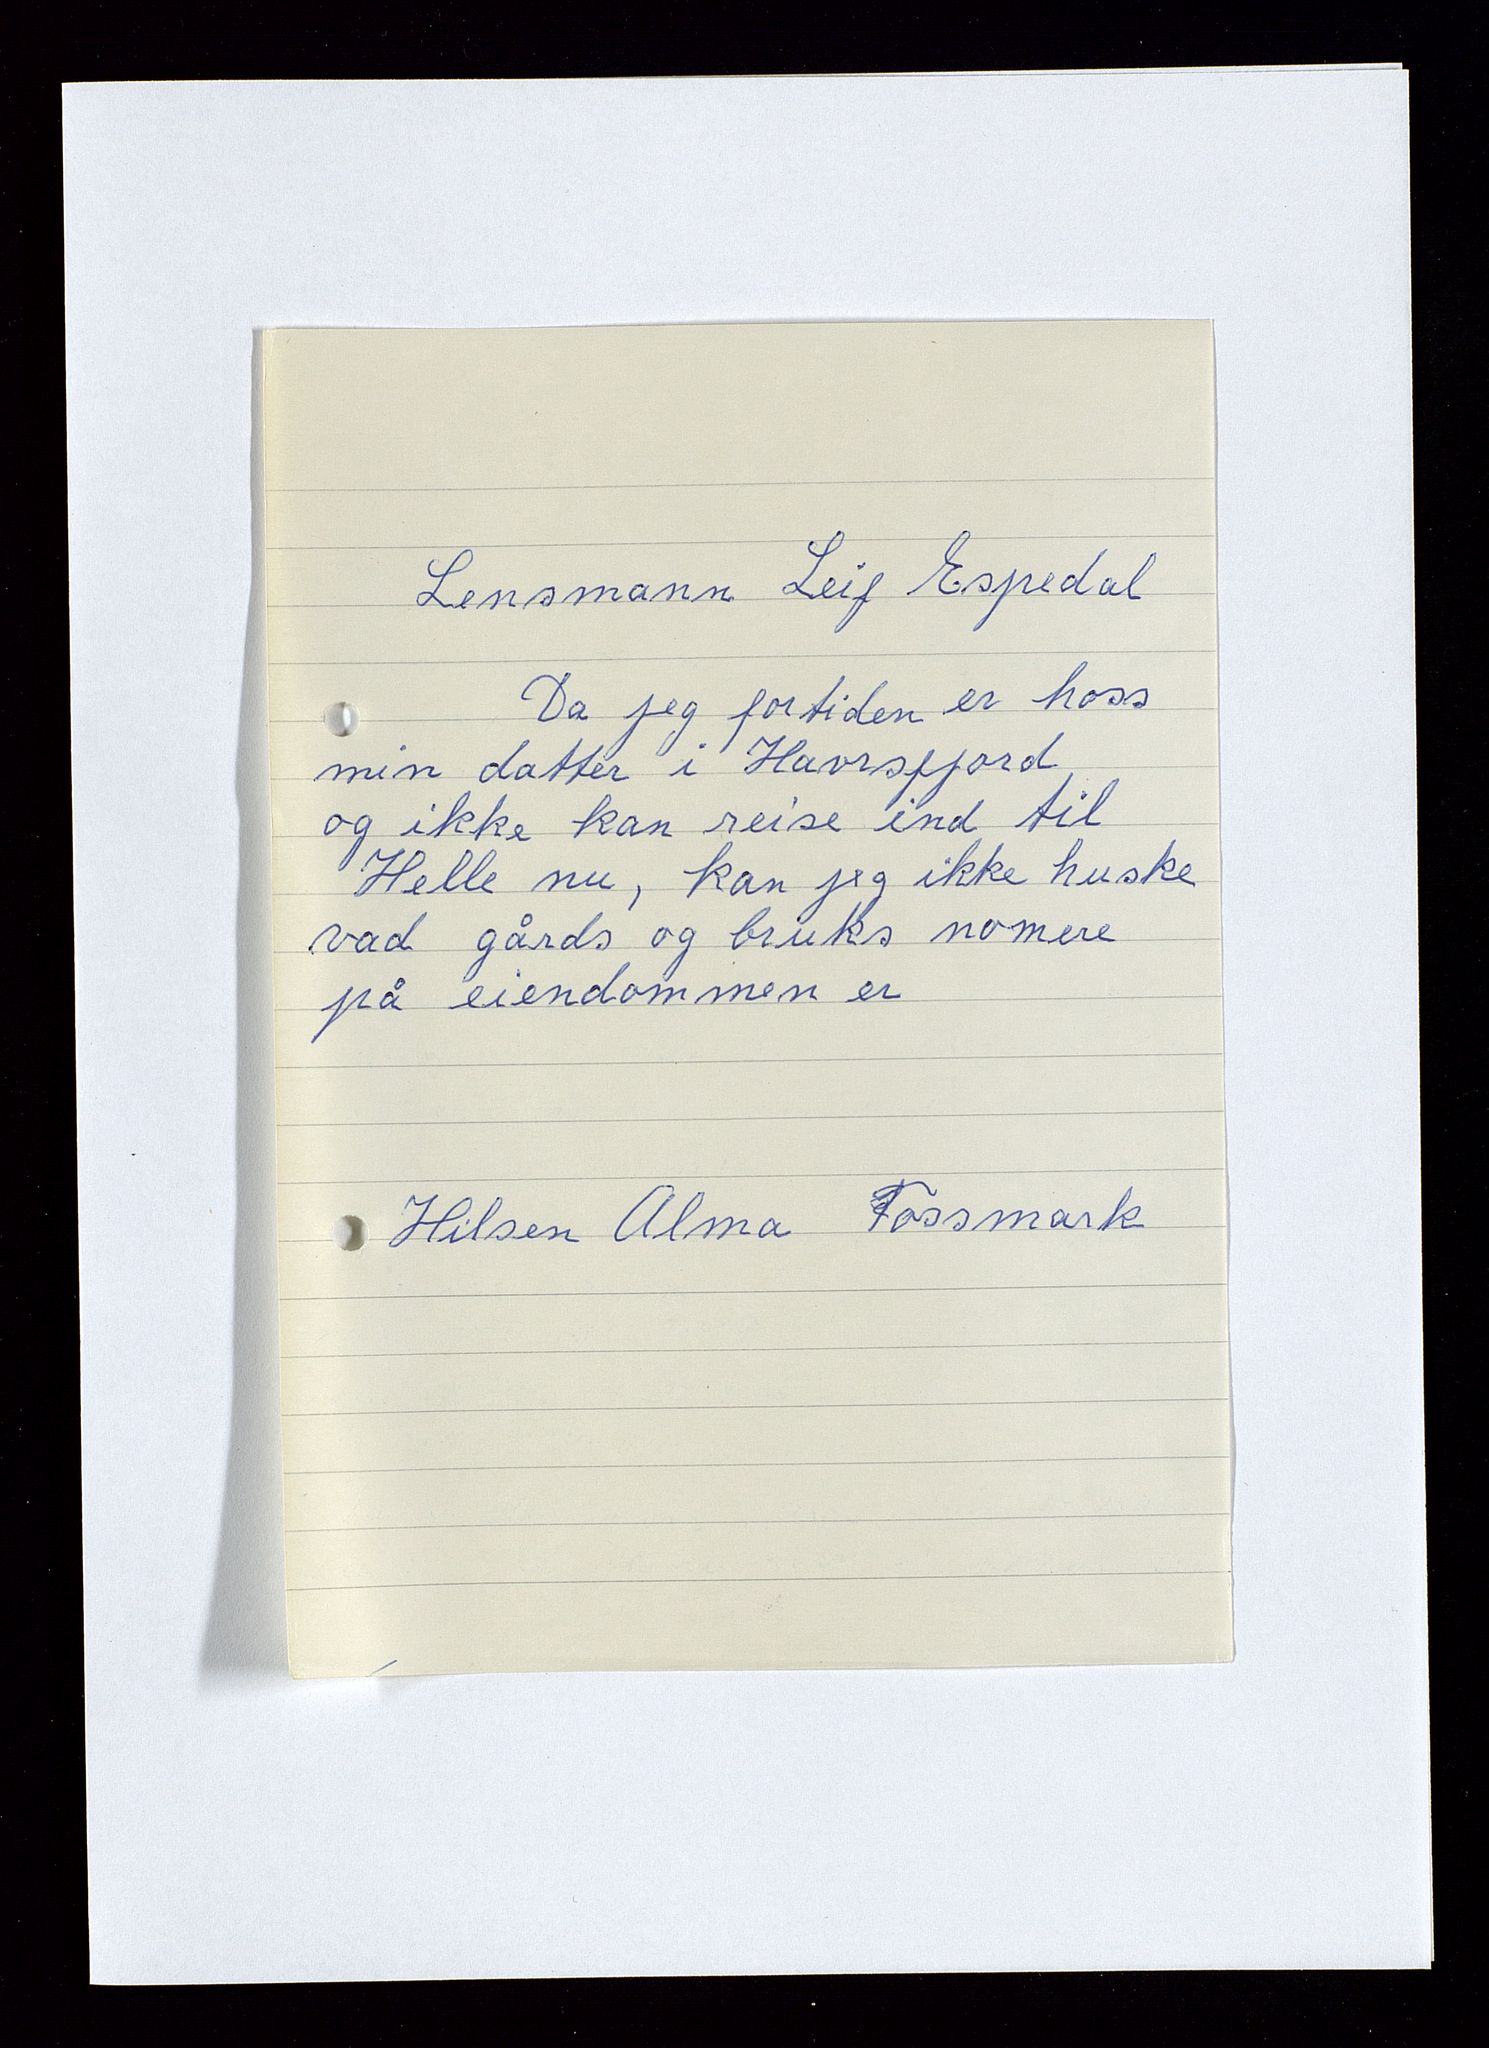 Lensmann Leif Espedal
Da jeg fortiden er hoss
min datter i Havrsfjord
og ikke kan reise ind til
Helle nu, kan jeg ikke huske
vad gårds og bruks nomere
på eiendommen er
Hilsen Alma Fossmark